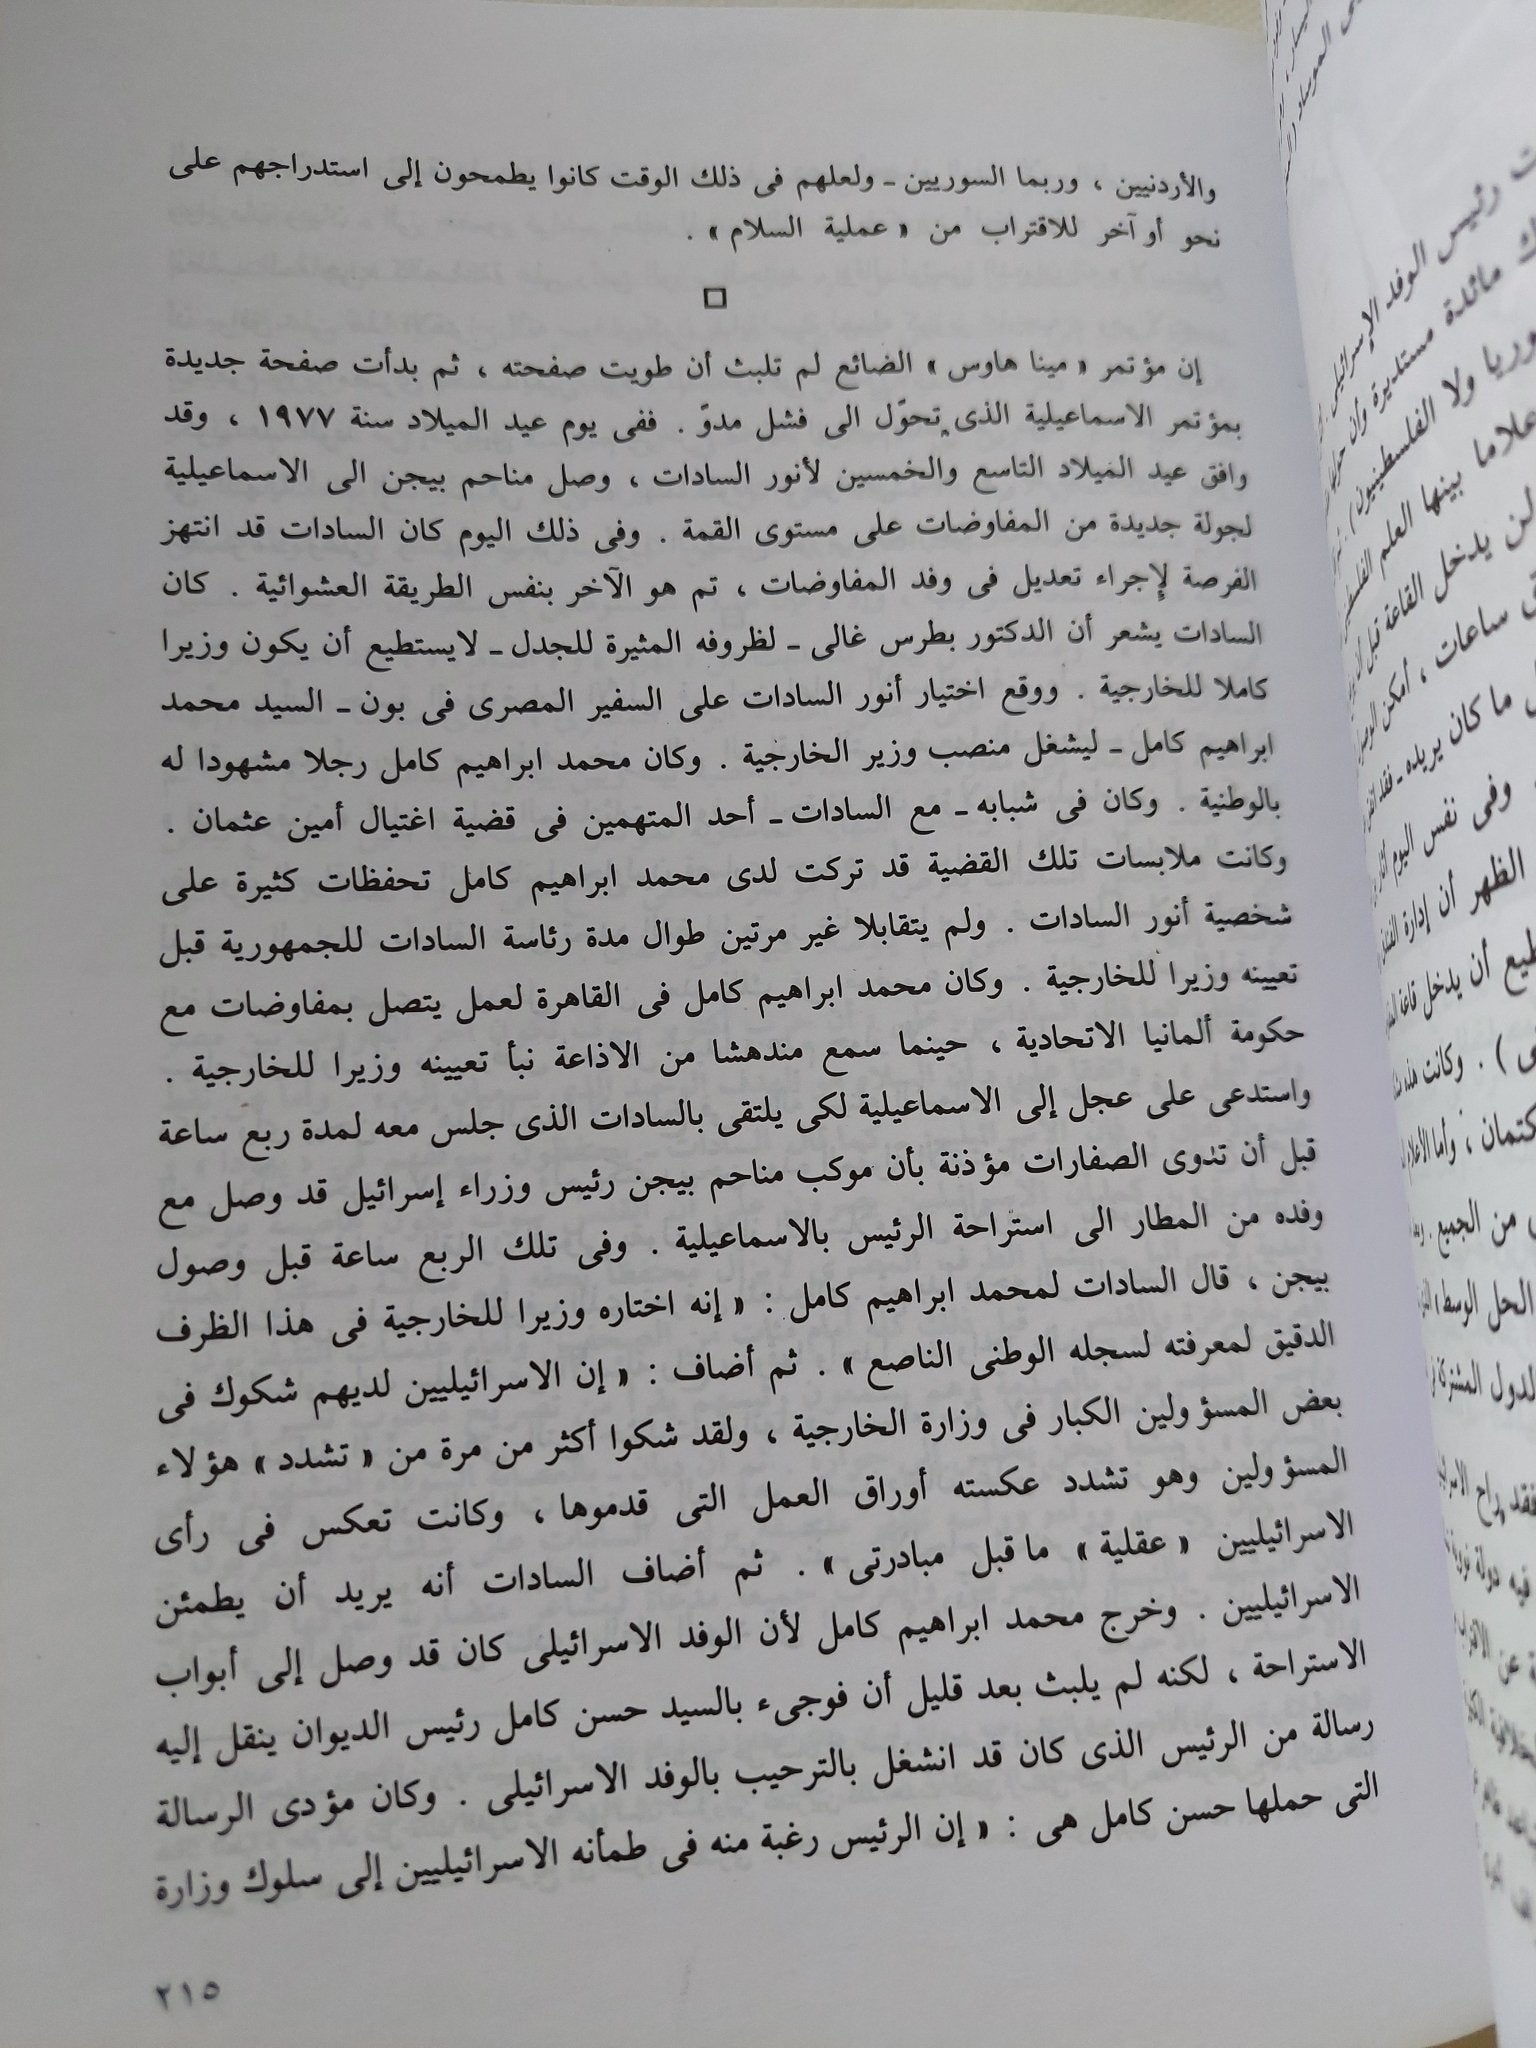 والأردنيين ، وربما السوريين ـ ولعلهم فى ذلك الوقت كانوا يطمحون إلى استدراجهم على
نحو أو آخر للاقتراب من « عملية السلام » .
إن مؤتمر « مينا هاوس » الضائع لم تلبث أن طويت صفحته ، ثم بدأت صفحة جديدة
بمؤتمر الاسماعيلية الذى تحوّل الى فشل مدوّ . ففى يوم عيد الميلاد سنة ١٩٧٧ ، وقد
وافق عيد الميلاد التاسع والخمسين لأنور السادات ، وصل مناحم بيجن الى الاسماعيلية
لجولة جديدة من المفاوضات على مستوى القمة . وفى ذلك اليوم كان السادات قد انتهز
الفرصة لإجراء تعديل فى وفد المفاوضات ، تم هو الآخر بنفس الطريقة العشوائية . كان
السادات يشعر أن الدكتور بطرس غالى ـ لظروفه المثيرة للجدل ـ لايستطيع أن يكون وزيرا
كاملا للخارجية . ووقع اختيار أنور السادات على السفير المصرى فى بون ـ السيد محمد
ابراهيم كامل ـ ليشغل منصب وزير الخارجية . وكان محمد ابراهيم كامل رجلا مشهودا له
بالوطنية . وكان فى شبابه ـ مع السادات ـ أحد المتهمين فى قضية اغتيال أمين عثمان .
وكانت ملابسات تلك القضية قد تركت لدى محمد ابراهيم كامل تحفظات كثيرة على
شخصية أنور السادات . ولم يتقابلا غير مرتين طوال مدة رئاسة السادات للجمهورية قبل
تعيينه وزيرا للخارجية . وكان محمد ابراهيم كامل فى القاهرة لعمل يتصل بمفاوضات مع
حكومة ألمانيا الاتحادية ، حينما سمع مندهشا من الاذاعة نبأ تعيينه وزيرا للخارجية .
واستدعى على عجل إلى الاسماعيلية لكى يلتقى بالسادات الذى جلس معه لمدة ربع ساعة
قبل أن تدوى الصفارات مؤذنة بأن موكب مناحم بيجن رئيس وزراء إسرائيل قد وصل مع
وفده من المطار الى استراحة الرئيس بالاسماعيلية . وفى تلك الربع ساعة قبل وصول
بيجن ، قال السادات لمحمد ابراهيم كامل : « إنه اختاره وزيرا للخارجية فى هذا الظرف
الدقيق لمعرفته لسجله الوطنى الناصع » . ثم أضاف : « إن الاسرائيليين لديهم شكوك فى
بعض المسؤولين الكبار فى وزارة الخارجية ، ولقد شكوا أكثر من مرة من « تشدد » هؤلاء
المسؤولين وهو تشدد عكسته أوراق العمل التى قدموها ، وكانت تعكس فى رأى
الاسرائيليين « عقلية » ماقبل مبادرتى » . ثم أضاف السادات أنه يريد أن يطمئن
الاسرائيليين . وخرج محمد ابراهيم كامل لأن الوفد الاسرائيلى كان قد وصل إلى أبواب
الاستراحة ، لكنه لم يلبث بعد قليل أن فوجىء بالسيد حسن كامل رئيس الديوان ينقل إليه
رسالة من الرئيس الذى كان قد انشغل بالترحيب بالوفد الاسرائيلى . وكان مؤدى الرسالة
التى حملها حسن كامل هى : « إن الرئيس رغبة منه فى طمأنه الاسرائيليين إلى سلوك وزارة
٢١٥
رئيس الوفد الإسرائيلى
مائدة مستديرة وأن
ولا الفلسطينيون )
بينها العلم
لن يدخل القاعة قبل
ساعات ، أمكن
ما كان يريده ـ فقد
وفى نفس اليوم
الظهر أن إدارة
أن يدخل قاعة
وكانت هذه
من الجميع .
الحل الوسط »
الدول المشتركة